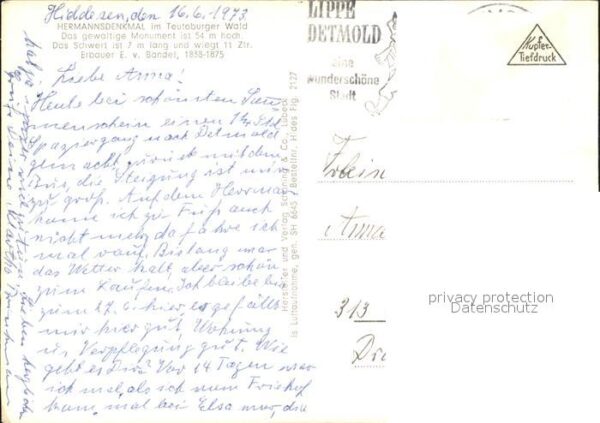 Hiddesen, den 16.6.1973
HERMANNSDENKMAL im Teutoburger Wald
Das gewaltige Monument ist 54 m hoch
Das Schwert ist 7 m lang und wiegt 11 Ztr.
Erbauer E. v. Bandel, 1838-1875
Liebe Anna!
Heute bei schönsten Son
nenschein einen 1¼ Std
Spaziergang nach Detmold
gemacht zurück mit dem
Bus, die Steigung ist mir
zu groß. Auf dem Herrman
komme ich zu Fuß auch
nicht mehr da fahre ich
mal rauf. Bislang war
das Wetter kalt, aber schön
zum Laufen. Ich bleibe bis
zum 27.6. hier, es gefällt
mir hier gut. Wohnung
u. Verpflegung gut. Wie
geht es Dir? Vor 14 Tagen war
ich mal, als ich vom Friehof
kam, mal bei Elsa nur, die
Hersteller und Verlag Schöning & Co., Lübeck
Bestellnr.
2127
LIPPE
DETMOLD
eine
wunderschöne
Stadt
Kupfer-
Tiefdruck
Anna
313
Dre
privacy protection
Datenschutz